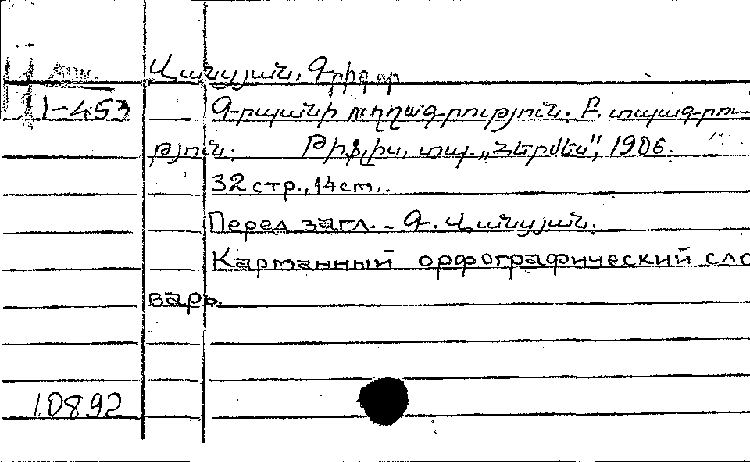 Վանցյան, Գրիգոր
1-453 Գրպանի ուղղագրություն. Բ. տպագրու-
թյուն: Թիֆլիս, տպ. „Հերմես", 1906.
32 стр., 14 cm.
Перед загл. - Գ. Վանցյան.
Карманный орфографический сло
варь.
10892